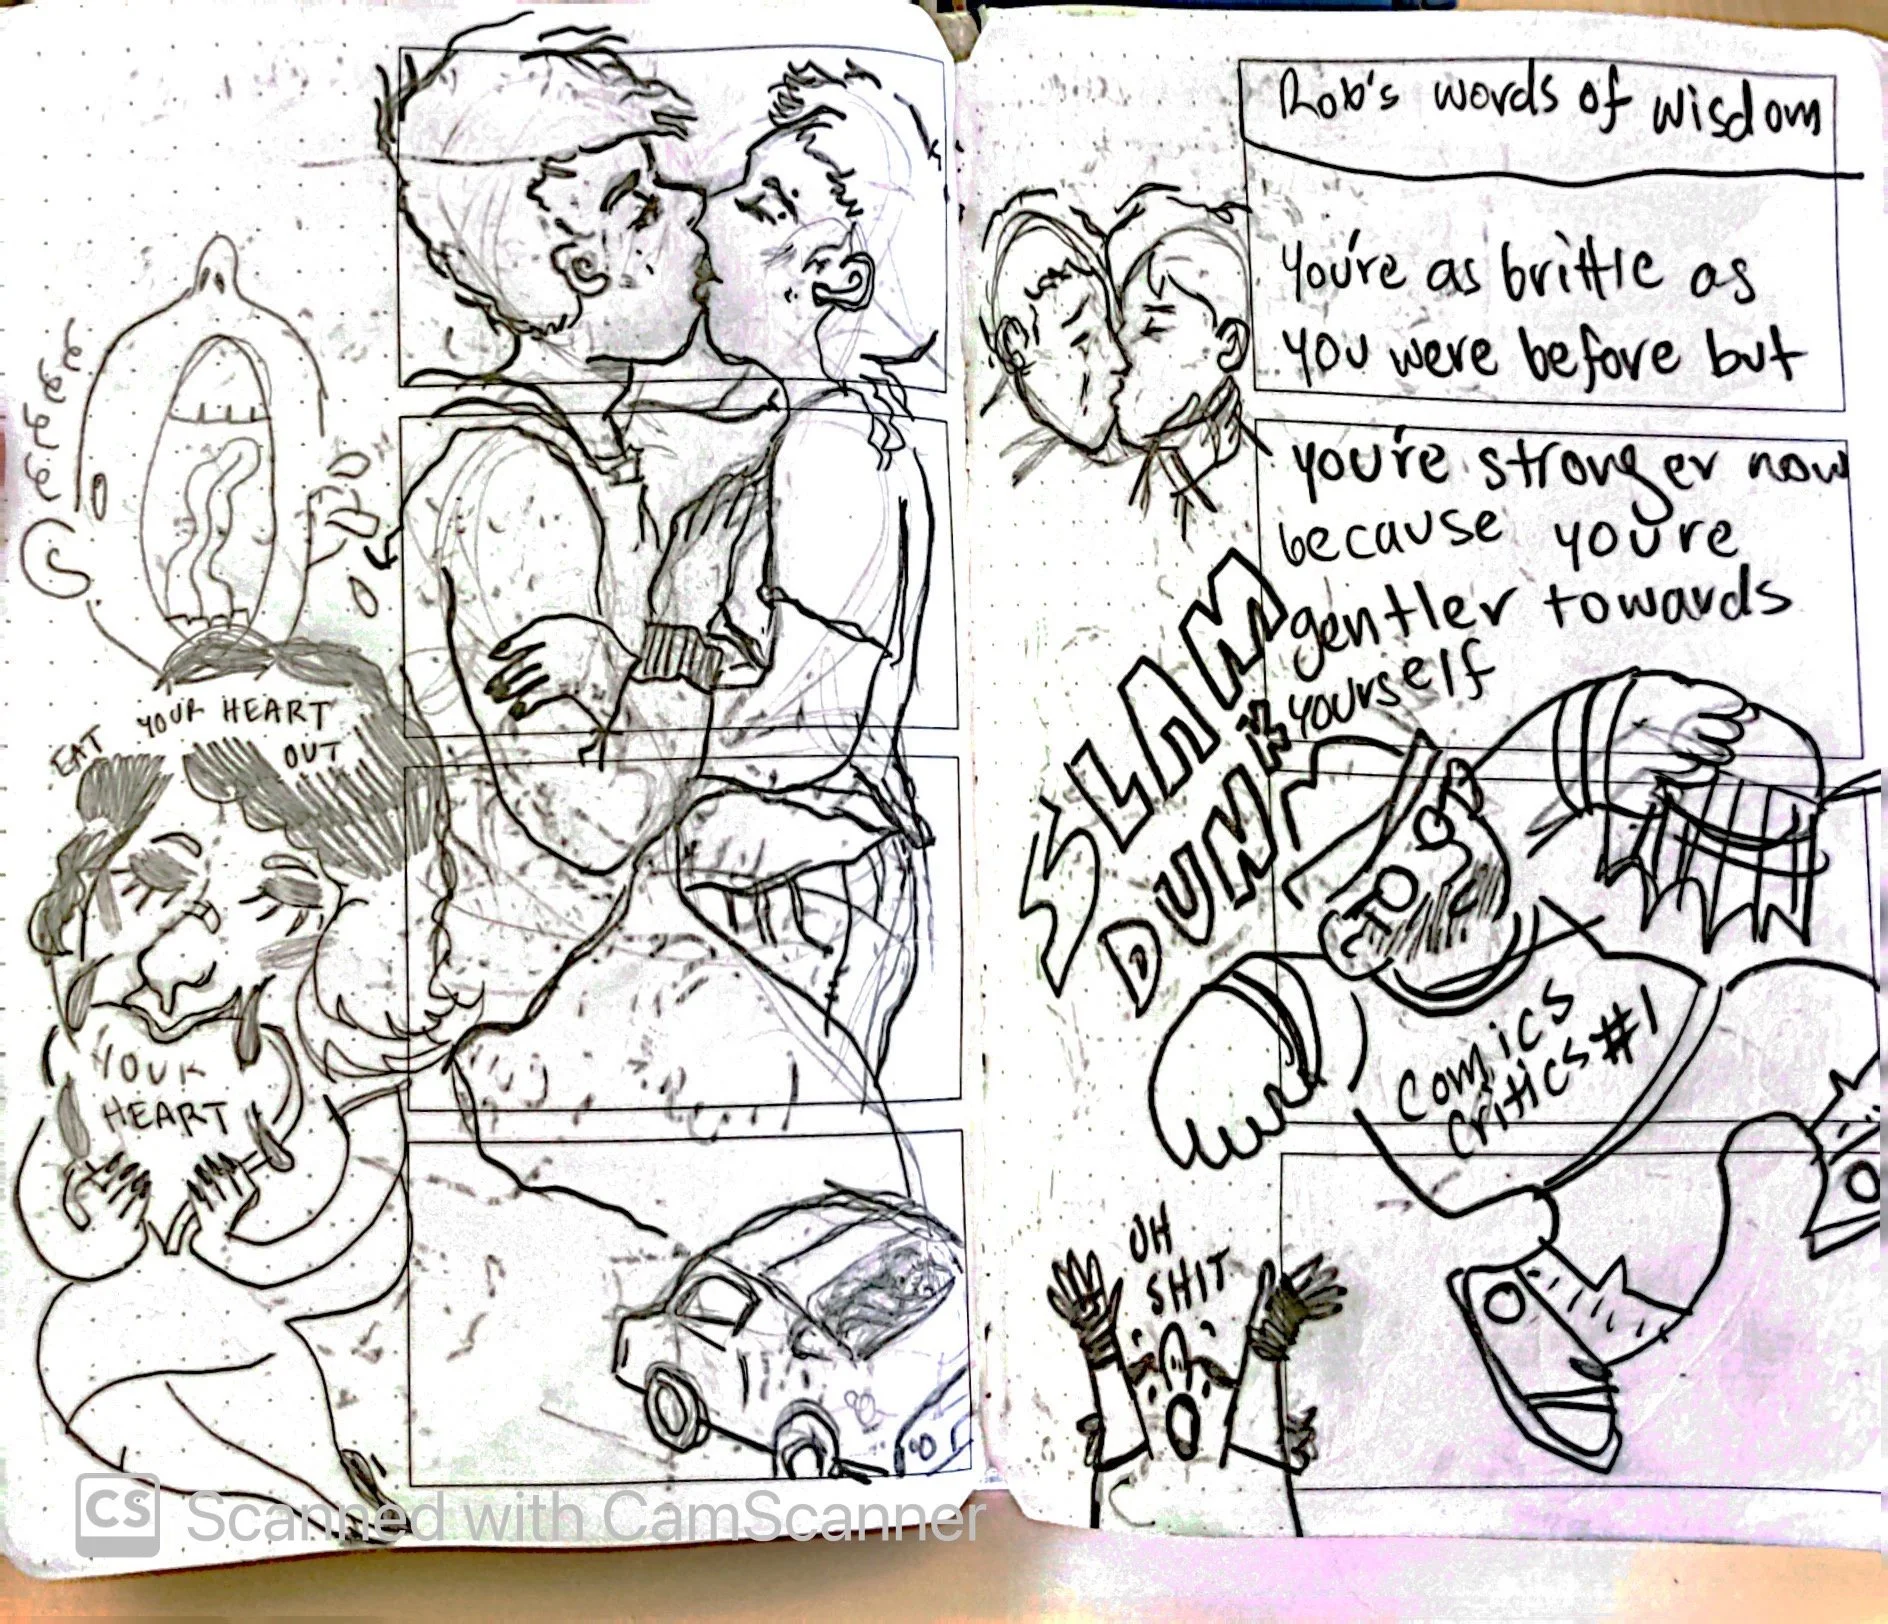 EAT YOUR HEART
OUT
YOUR
HEART
Rob's words of wisdom
You're as brittle as
you were before but
you're stronger now
because you're
gentler towards
yourself
SLAM
DUNK
Comics
critics #1
UH
SHIT
CS Scanned with CamScanner